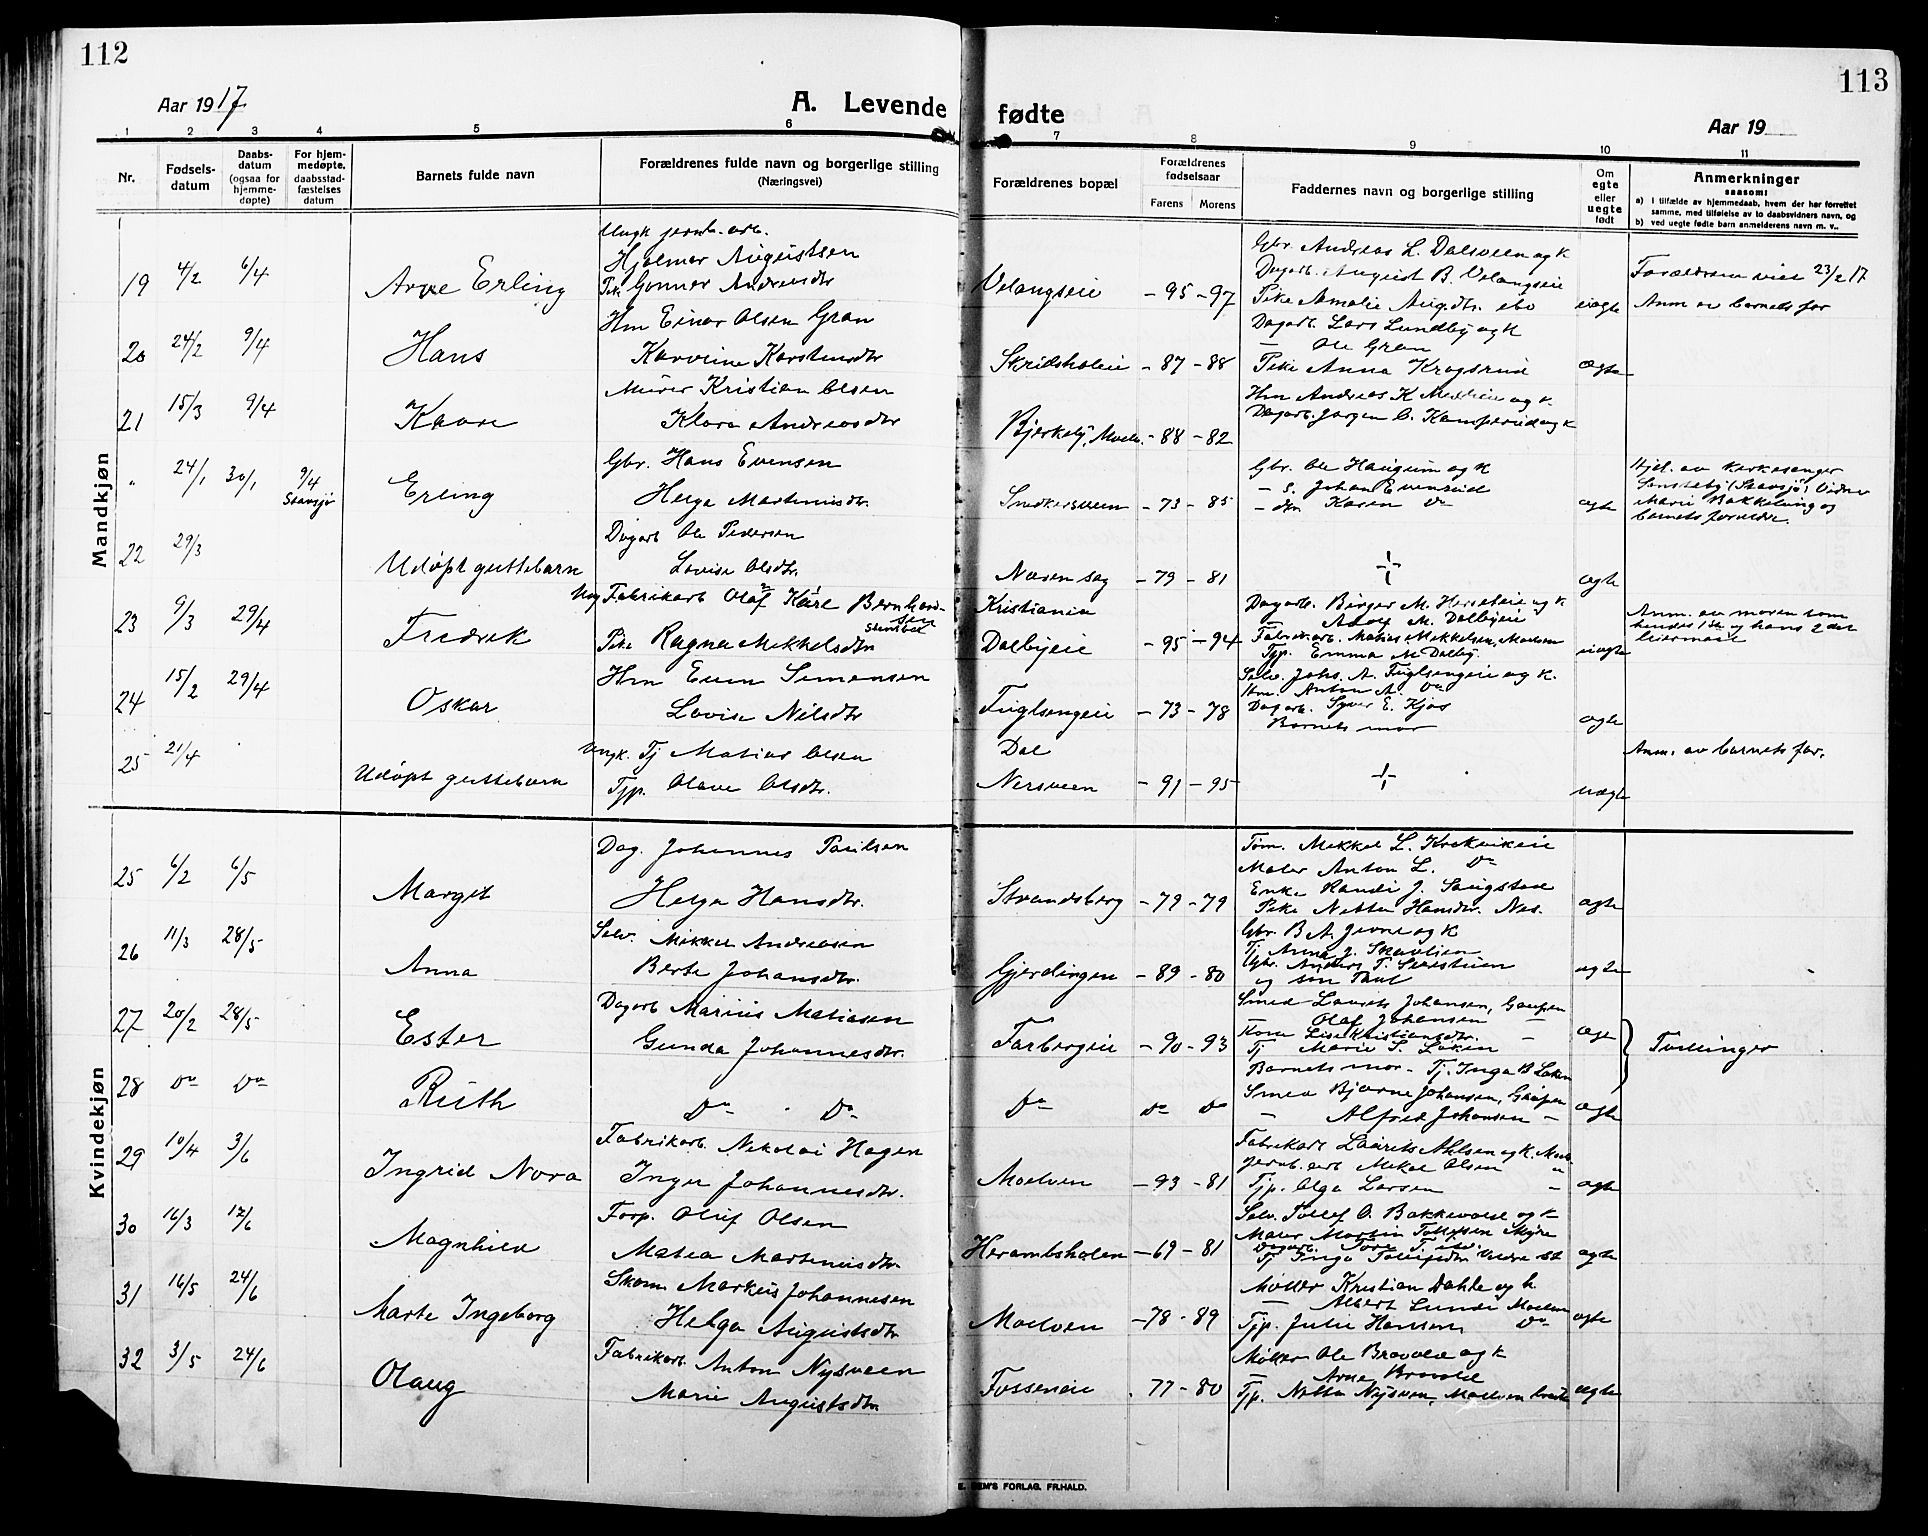 112
113
Aar 1917
A. Levende fødte
Aar 19
1 2 3 4 5 6 7 8 9 10 11
Nr.
Fødsels-
datum
Daabs-
datum
(ogsaa for
hjemme-
døpte)
For hjem-
medøpte,
daabsstad-
fæstelses
datum
Barnets fulde navn
Forældrenes fulde navn og borgerlige stilling
(Næringsvei)
Forældrenes bopæl
Forældrenes
fødselsaar
Farens Morens
Faddernes navn og borgerlige stilling
Om
egte
eller
uegte
født
Anmerkninger
saasom:
a) i tilfælde av hjemmedaab, hvem der har forrettet
samme, med tilføielse av to daabsvidners navn, og
b) ved uegte fødte barn anmelderens navn m. v..
Mandkjøn
Ungk jernb. arb.
Hjalmar Augustsen
19 4/2 6/4 Arne Erling
Pike Gunnor Andreasdtr
Velangseie - 95 - 97
Gbr. Andreas L. Dalsveen og k
Dagarb. August B. Velangseie
Pike Amalie Aug.dtr. ibd
uægte
Forældrene viet 23/2 17
Anm av barnets far
20 24/2 9/4 Hans
Hm Einar Olsen Gran
Karoline Karstensdtr
Skridsholeie - 87 - 88
Dagarb. Lars Lundby og k
— Ole Gran
Pike Anna Krogsrud
ægte
21 15/3 9/4 Kaare
Murer Kristian Olsen
Klara Andreasdtr
Bjerkely, Moelv. - 88 - 82
Hm Andreas K og k
Dagarb. Jørgen C. og k
" 24/1 30/1 9/4
Stavsjø
Erling
Gbr. Hans Evensen
Helga Martinusdtr.
Snekkersveen - 73 - 85
Gbr. Ole Haugum og k
— s. Johan Evenrud
— dtr. Karen Do
ægte
Hjd. av kirkesanger
(Stavsjø) Vidner
Marie Bakkelung og
barnets forældre.
22 29/3 Udøpt guttebarn
Dagarb Ole Pedersen
Lovise Olsdtr.
Næsen sag - 79 - 81
ægte
23 9/3 29/4 Fredrik
Ung Fabrikarb Olaf Kåre Bernhard-
sen
Pike Ragna Mekkelsdtr
Kristiania
Dalbyeie - 95 - 94
Dagarb. Birger M. og k
Adolf M. Dalbyeie
Fabrikarb. Matias Mekkelsen, Moelven
Tjp. Emma M. Dalby.
uægte
Anm. av moren som
hendes 1ste og hans 2det
leiermaal
24 15/2 29/4 Oskar
Hm Even Simensen
Lovise Nilsdtr
Fuglsengeie - 73 - 78
Selv. Johs. A. Fuglsengeie og k.
Hm. Anton A. Do
Dagarb. Syver E. Kjos
Barnets mor
ægte
25 21/4 Udøpt guttebarn
Ungk. Tj Matias Olsen
Tjp. Olave Olsdtr.
Dal
Nersveen - 91 - 95
uægte
Anm. av barnets far.
Kvindekjøn
25 6/2 6/5 Margit
Dag. Johannes Paulsen
Helga Hansdtr.
Strandsberg - 79 - 79
Tøm. Mekkel L.
Maler Anton L. Do
Enke Randi J. Saugstad
Pike Netta Hansdtr. Nes.
ægte
26 11/3 28/5 Anna
Selv. Mikkel Andreasen
Berte Johansdtr.
Gjerdingen - 89 - 80
Gbr. B A. Jevne og k
Tj Anna J. Skavlien
Gbr. Anders T.
og søn Paul
ægte
27 20/2 28/5 Ester
Dagarb Marius Matiasen
Gunda Johannesdtr.
Farbergeie - 90 - 93
Smed Laurits Johansen, Gaupen
— Olaf Johansen —
Kone Lise Kristiansdtr. —
Tj Marie S. Løken
Barnets mor - Tj. Inga B Løken
ægte
Tvillinger
28 Do Do Ruth
Do Do
Do Do Do
Smed Bjarne Johansen, Gaupen
— Alfred Johansen —
ægte
29 10/4 3/6 Ingrid Nora
Fabrikarb. Nikolai Hagen
Inga Johannesdtr.
Moelven - 93 - 81
Fabrikarb Laurits Ahlsen og k.
Jernb. arb Mikal Olsen "
Tjp. Olga Larsen —
ægte
30 16/3 17/6 Magnhild
Forp. Oluf Olsen
Matea Martinusdtr
Herambsholen - 69 - 81
Selv. Tollef O. Bakkevold og k
Maler Martin Myre
Dagarb. Tore T.
Tj Inga
ægte
31 16/5 24/6 Marte Ingeborg
Skom Markus Johannesen
Helga Augustsdtr
Moelven - 78 - 89
Møller Kristian Dahle og k.
— Albert Lunde Moelven
Tjp. Julie Hansen Do
ægte
32 3/5 24/6 Olaug
Fabrikarb. Anton Nysveen
Marie Augustsdtr.
Fosseneie . 77 - 80
Møller Ole Bravold og k
— Arne Bravold
Tjp. Netta Nysveen, Moelven
ægte
E. SEM'S FORLAG. FR.HALD.